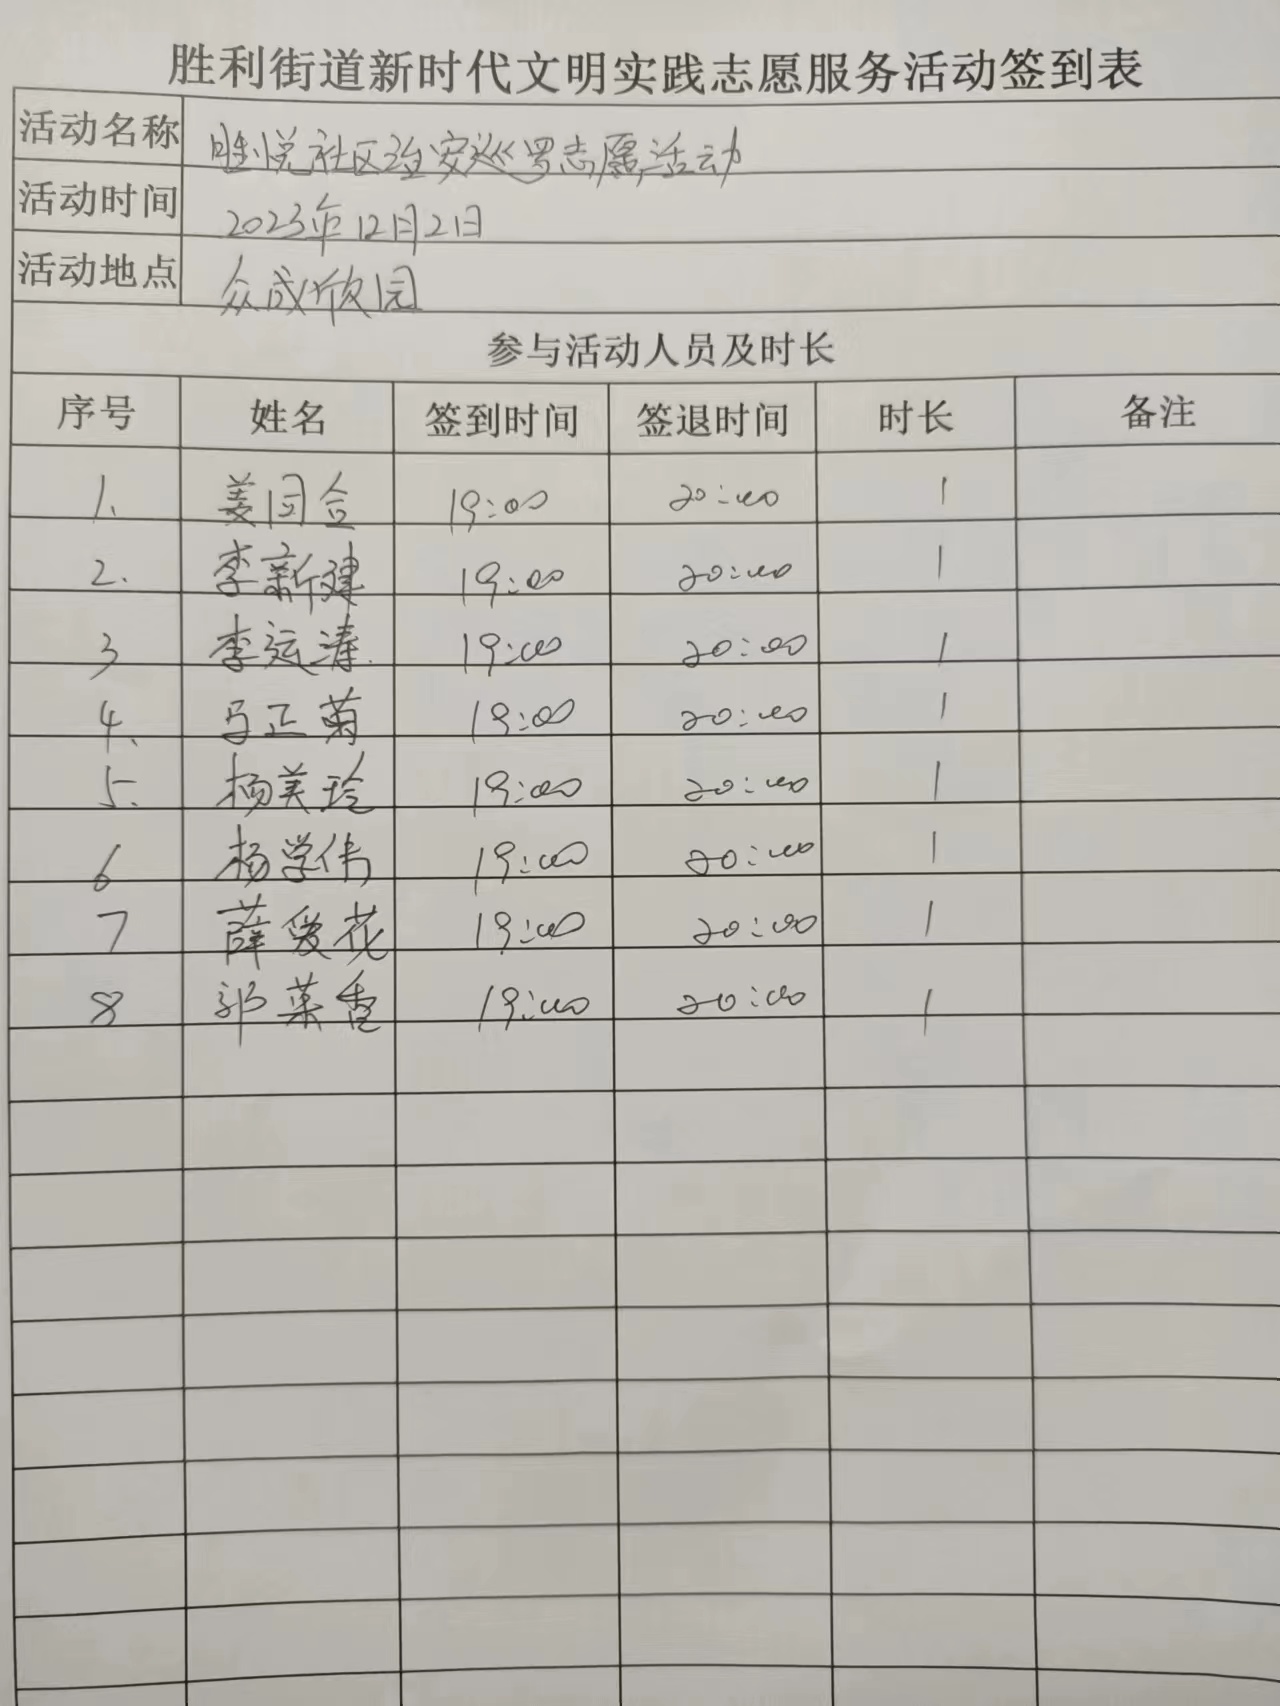 胜利街道新时代文明实践志愿服务活动签到表
活动名称 胜悦社区治安巡罗志愿活动
活动时间 2023年12月2日
活动地点 众成欣园
参与活动人员及时长
序号 姓名 签到时间 签退时间 时长 备注
1、 姜同合 19:00 20:00 1
2. 李新建 19:00 20:00 1
3 李运涛 19:00 20:00 1
4、 马正菊 19:00 20:00 1
5. 杨美玲 19:00 20:00 1
6 杨学伟 19:00 20:00 1
7 薛爱花 19:00 20:00 1
8 郭菜香 19:00 20:00 1